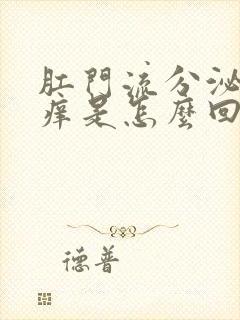 肛門流分泌
痒是怎麼回
德普